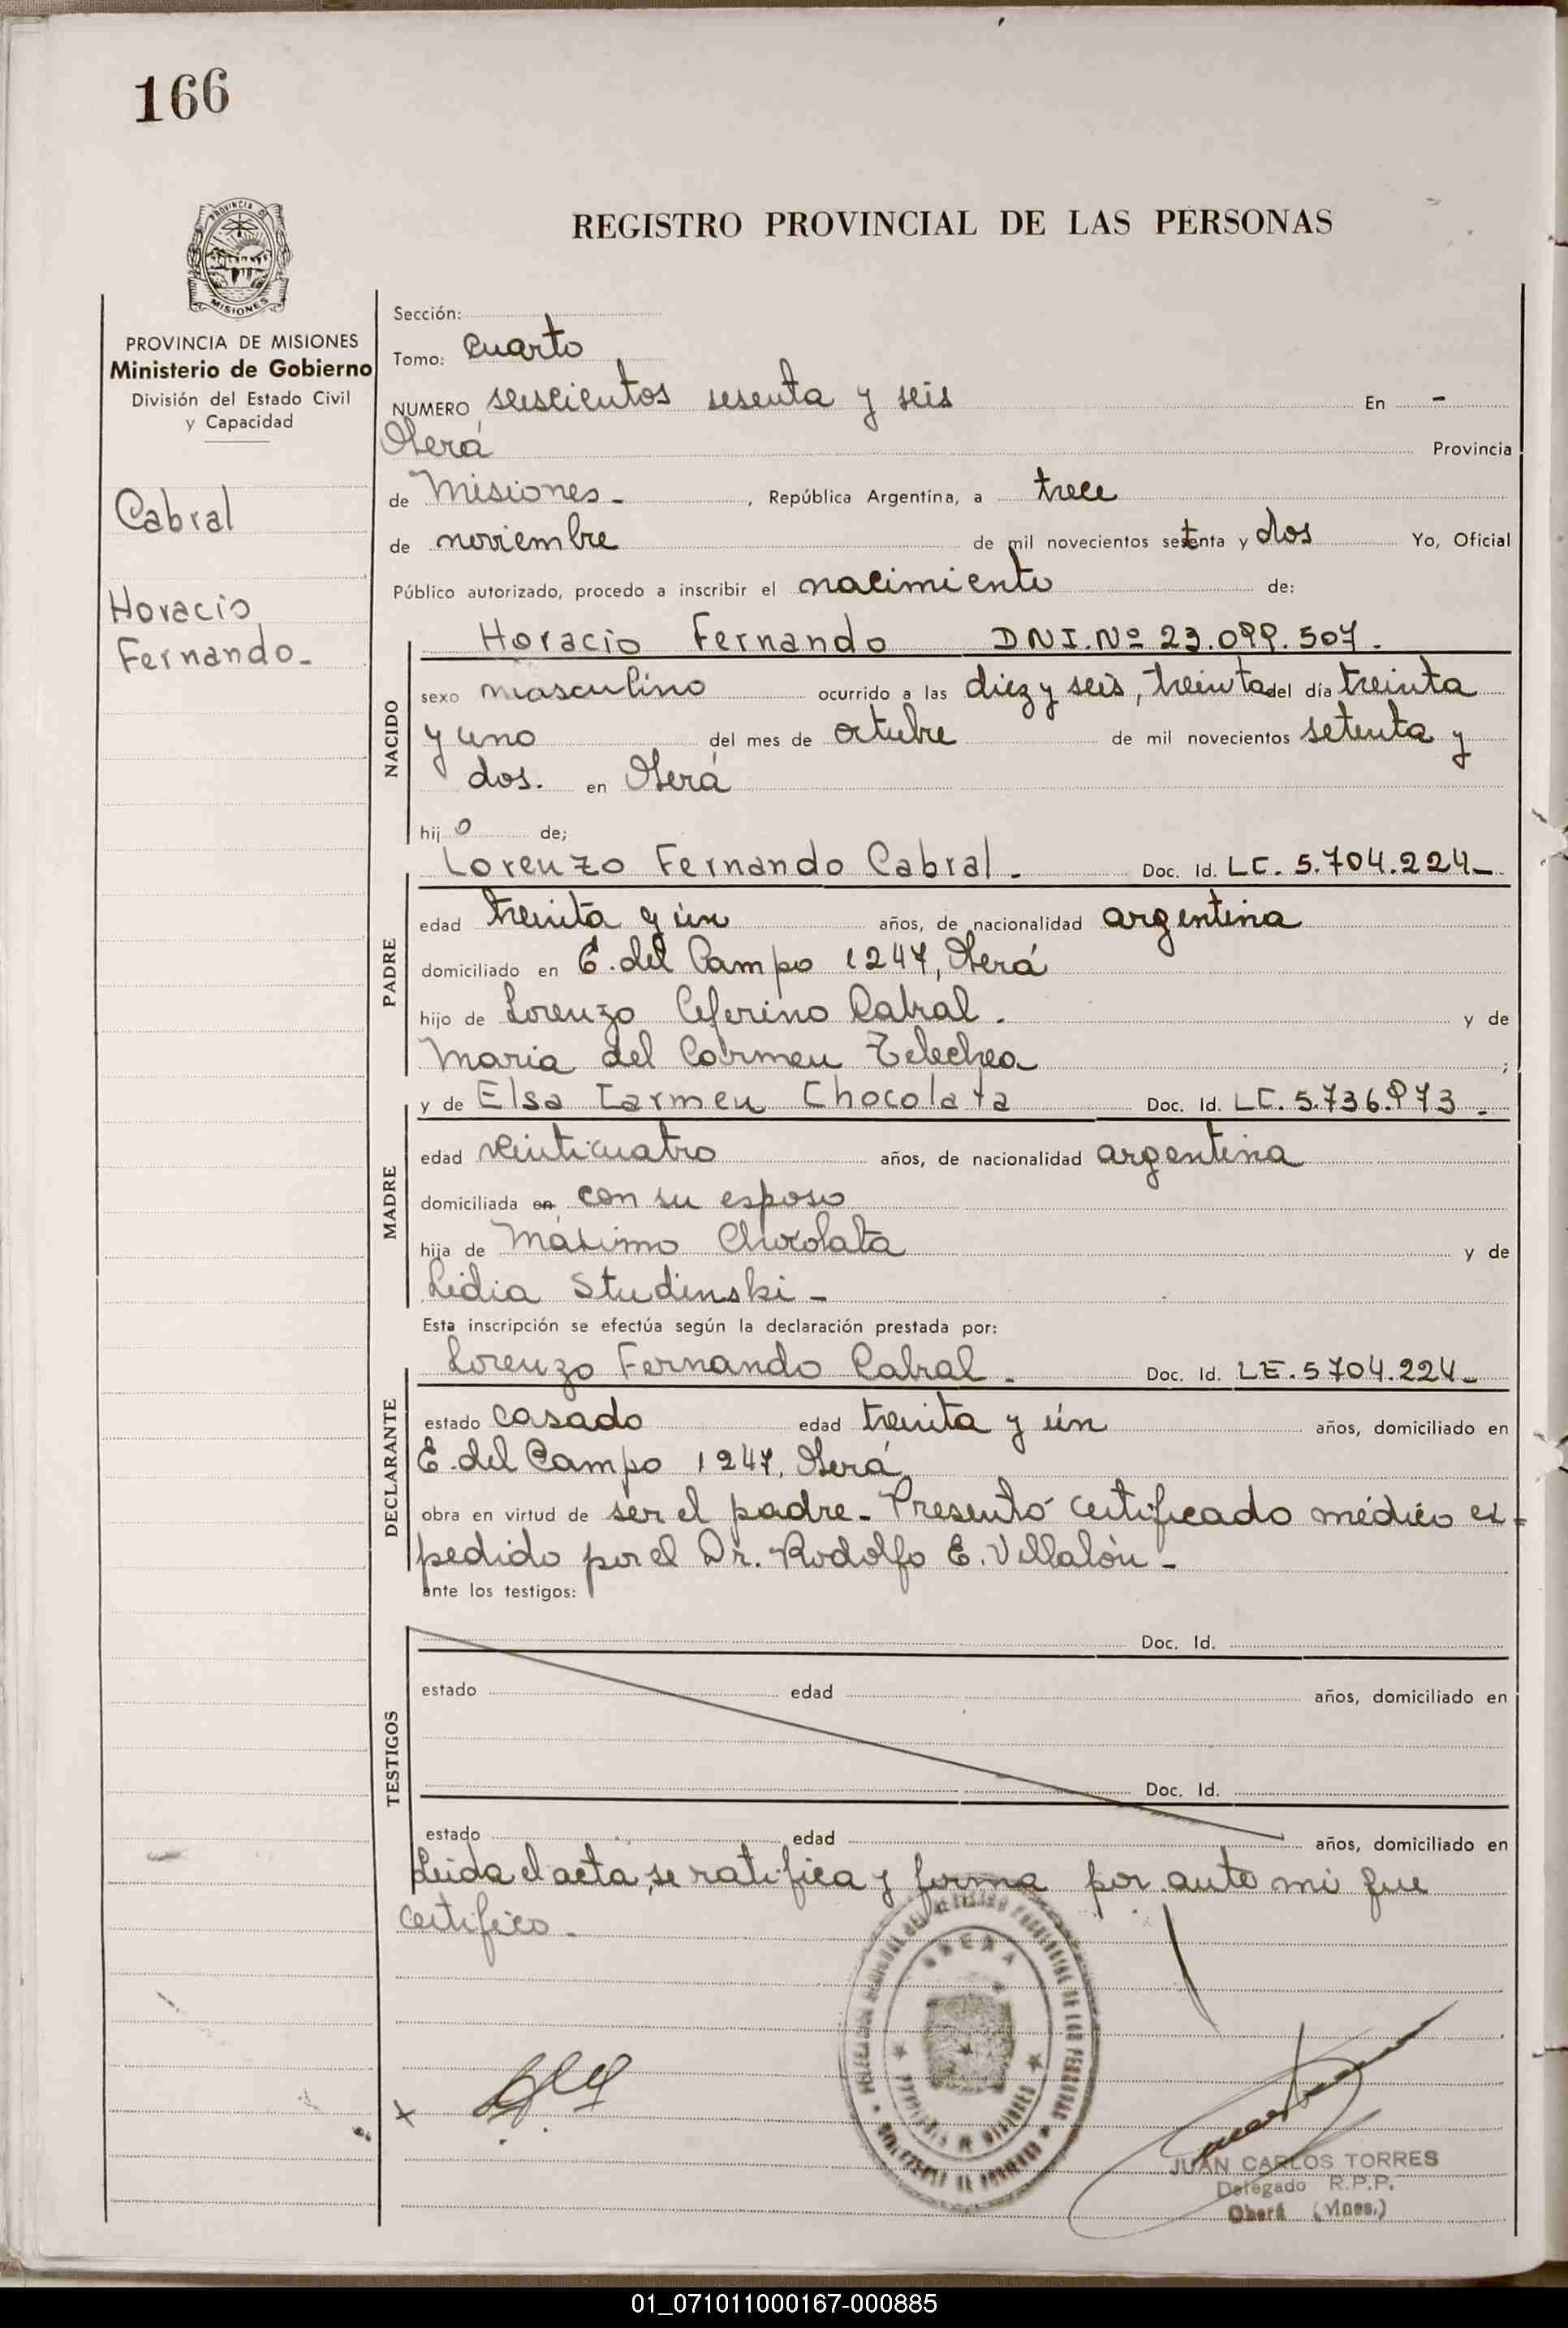 166
PROVINCIA DE
MISIONES
REGISTRO PROVINCIAL DE LAS PERSONAS
PROVINCIA DE MISIONES
Ministerio de Gobierno
División del Estado Civil
y Capacidad
Cabral
Horacio
Fernando.-
Sección:
Tomo: Cuarto
NUMERO seiscientos sesenta y seis En -
Oberá Provincia
de Misiones - , República Argentina, a trece
de noviembre de mil novecientos setenta y dos Yo, Oficial
Público autorizado, procedo a inscribir el nacimiento de:
NACIDO
Horacio Fernando DNI. Nº 23.099.507.
sexo masculino ocurrido a las diez y seis, treinta del día treinta
y uno del mes de octubre de mil novecientos setenta y
dos. en Oberá
hij o de;
PADRE
Lorenzo Fernando Cabral. Doc. Id. LE. 5.704.224-
edad treinta y ún años, de nacionalidad argentina
domiciliado en E. del Campo 1247, Oberá
hijo de Lorenzo Ceferino Cabral. y de
Maria del Carmen Telechea ;
MADRE
y de Elsa Carmen Chocolata Doc. Id. LC. 5.736.973 -
edad veinticuatro años, de nacionalidad argentina
domiciliada en con su esposo
hija de Máximo Chocolata y de
Lidia Studinski -
Esta inscripción se efectúa según la declaración prestada por:
DECLARANTE
Lorenzo Fernando Cabral. Doc. Id. LE. 5704.224-
estado casado edad treinta y ún años, domiciliado en
E. del Campo 1247, Oberá
obra en virtud de ser el padre - Presentó certificado médico ex-
pedido por el Dr. Rodolfo E. Villalón -
ante los testigos:
TESTIGOS
Doc. Id.
estado edad años, domiciliado en
Doc. Id.
estado edad años, domiciliado en
Leida el acta, se ratifica y firma por ante mi que
certifico -
OBERA
PROVINCIA DE MISIONES
JUAN CARLOS TORRES
Delegado R.P.P.
Oberá (Mnes.)
01_071011000167-000885